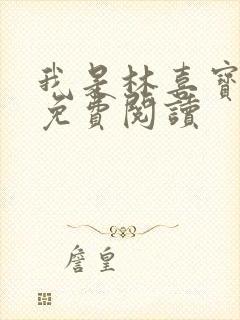 我是林喜寶
免費閱讀
詹皇